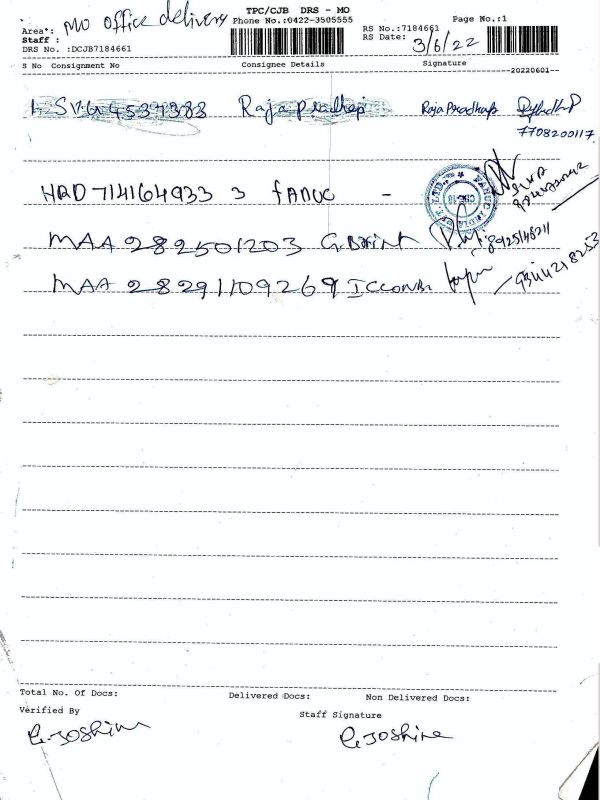 TPC/CJB DRS - MO
Area*: MO office delivery Phone No.:0422-3505555 RS No.:7184661 Page No.:1
Staff : RS Date: 3/6/22
DRS No. :DCJB7184661
S No Consignment No Consignee Details Signature
20220601
1. Raja pradhap RajaPradhap
7708200117
HRD 714164933 3 FANUC -
MAA 282501203 G. Brint 8925148211
MAA 28291109269 ICICOMBI 9344218253
Total No. Of Docs: Delivered Docs: Non Delivered Docs:
Verified By Staff Signature
G. Joshine G. Joshine